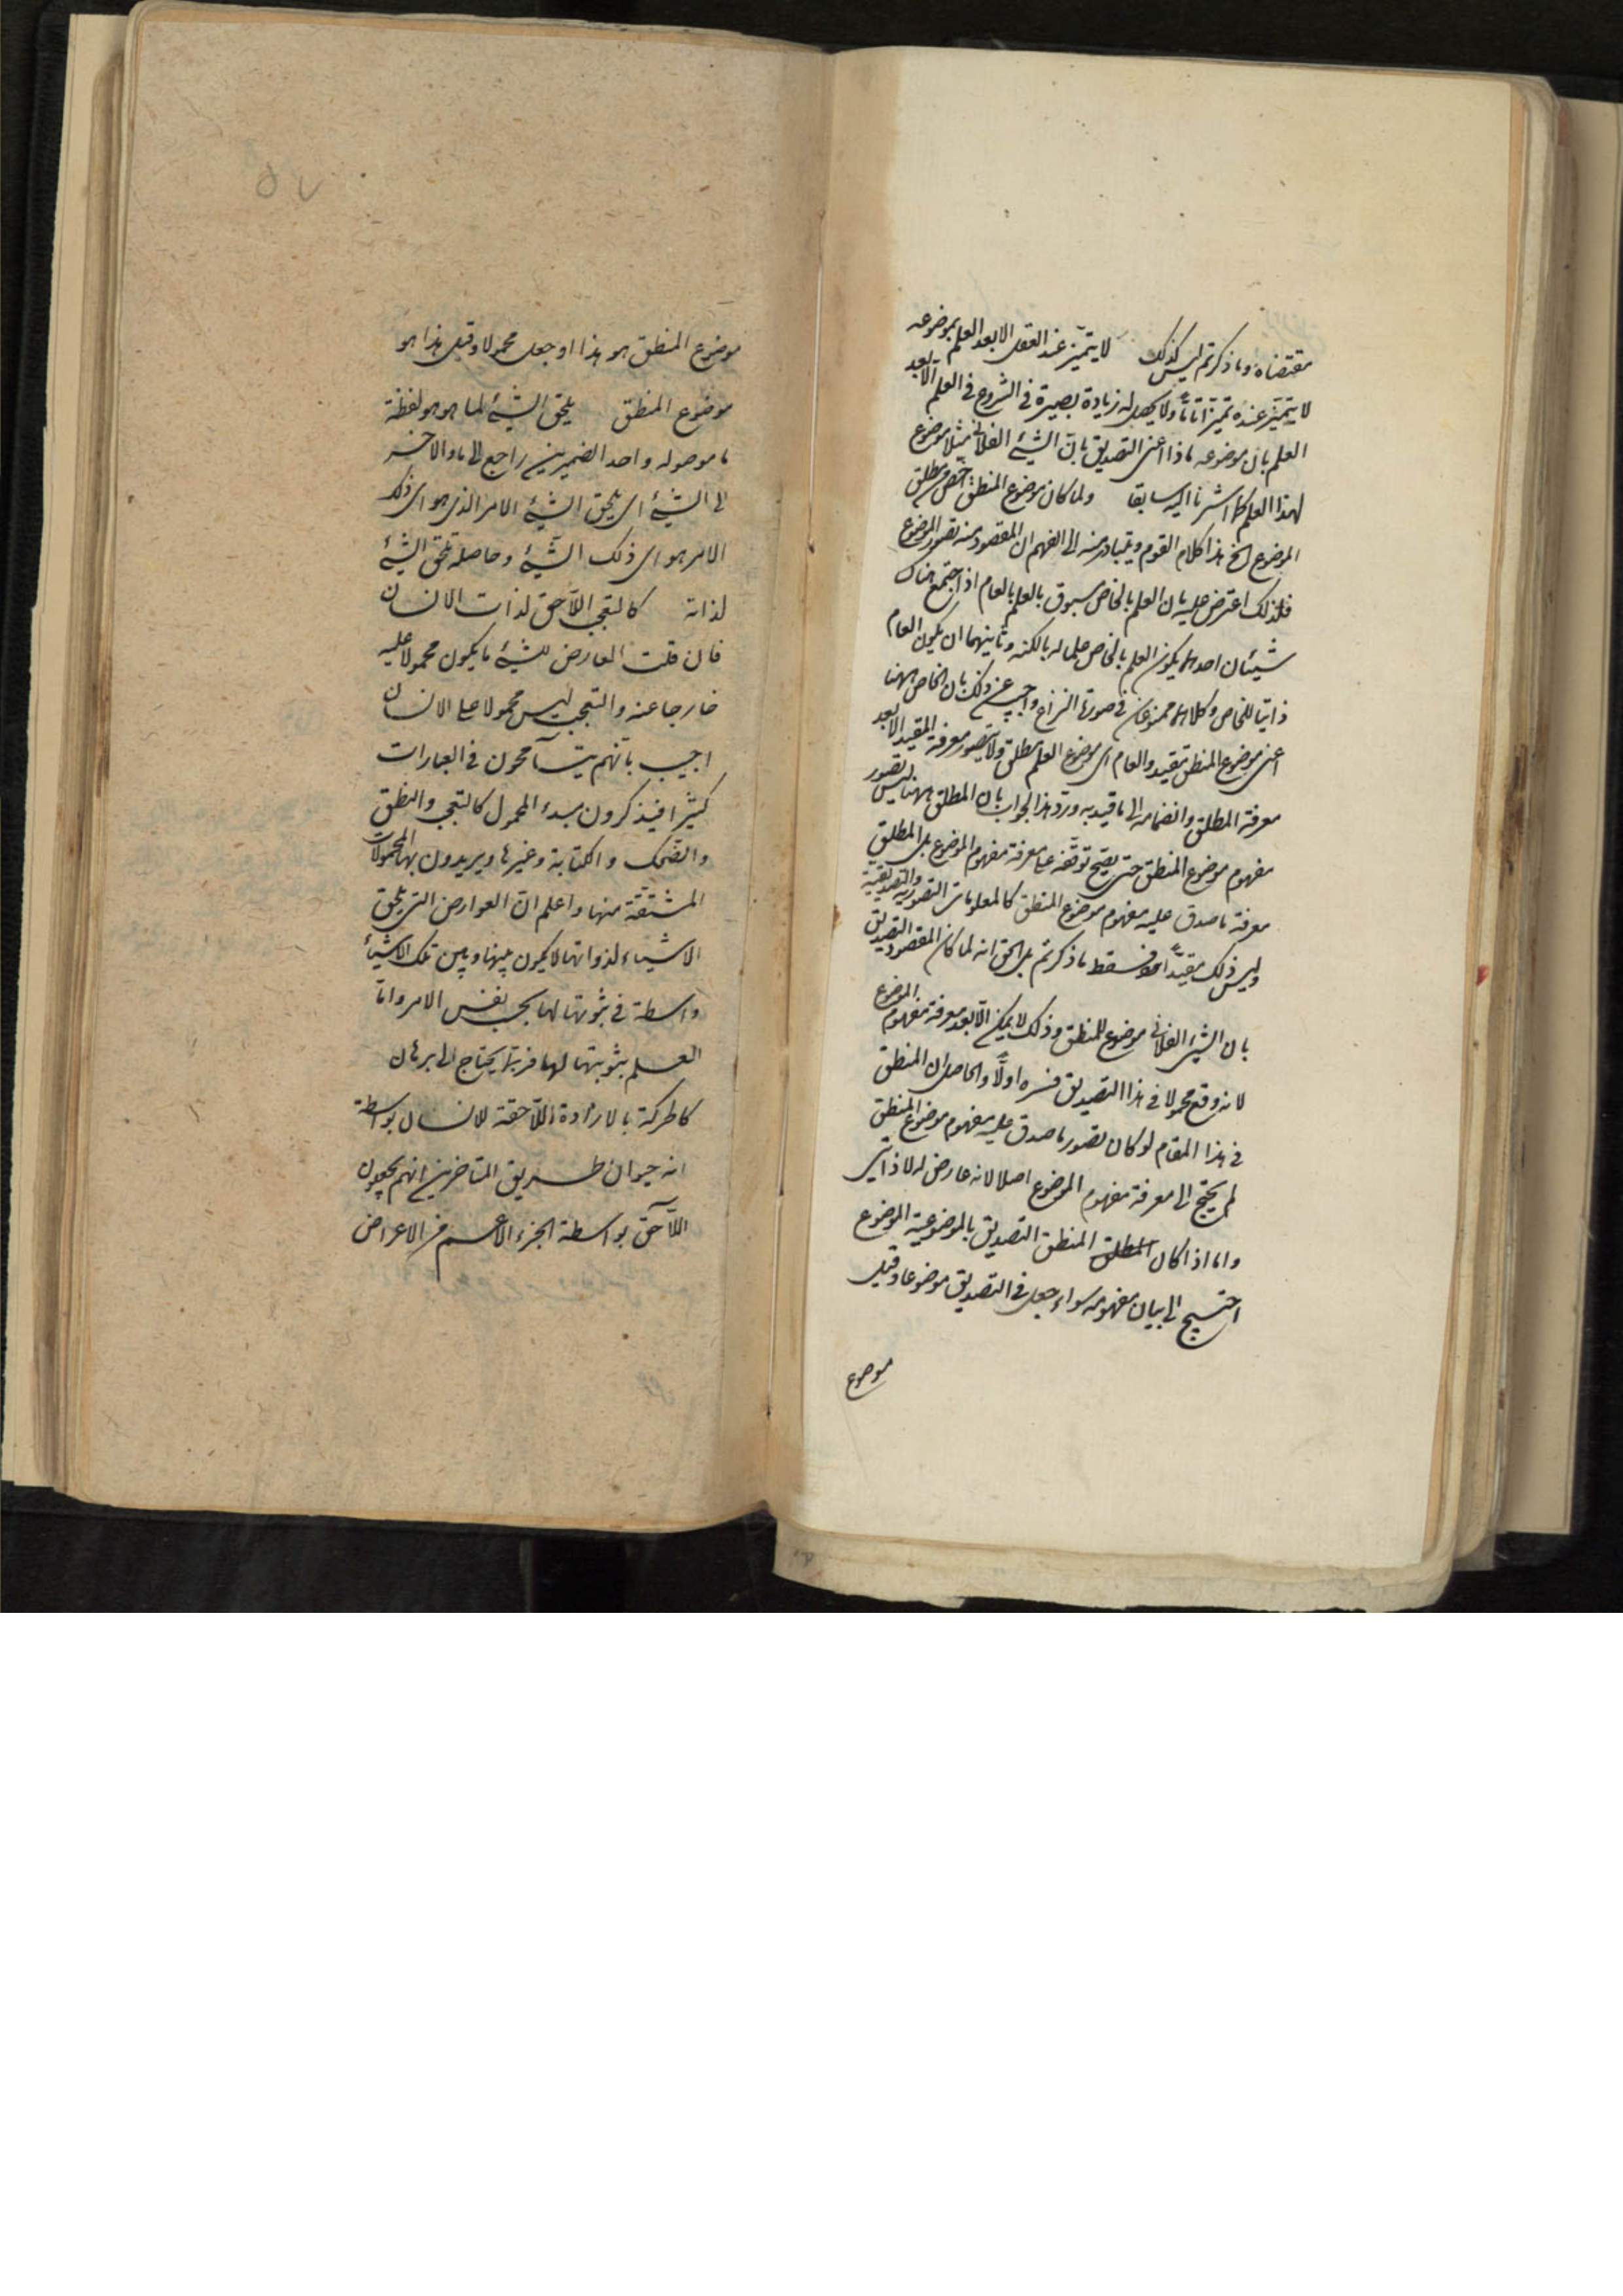 مقتضاه وما ذكرتم ليس كذلك لا يتميز عند العقل الا بعد العلم بموضوعه
لا يتميز عنده تميزا تاما ولا يحصل له زيادة بصيرة فى الشروع فى العلم الا بعد
العلم بان موضوعه ماذا اعنى التصديق بان الشئ الفلانى مثلا موضوع
لهذا العلم كما اشرنا اليه سابقا ولما كان موضوع المنطق اخص من مطلق
الموضوع الخ هذا كلام القوم ويتبادر منه الى الفهم ان المقصود منه تصور الموضوع
فلذلك اعترض عليه بان العلم بالخاص مسبوق بالعلم بالعام اذا اجتمع هناك
شيئان احدهما يكون العلم بالخاص علما له بالكنه وثانيهما ان يكون العام
ذاتيا للخاص وكلاهما ممنوعان فى صورة النزاع واجيب عن ذلك بان الخاص ههنا
اعنى موضوع المنطق مقيد والعام اى موضوع العلم مطلق ولا يتصور معرفة المقيد الا بعد
معرفة المطلق وانضمامه الى ما قيد به ورد هذا الجواب بان المطلق ههنا ليس تصور
مفهوم موضوع المنطق حتى يصح توقفه على معرفة مفهوم الموضوع بل المطلق
معرفة ما صدق عليه مفهوم موضوع المنطق كالمعلومات التصورية والتصديقية
وليس ذلك مقيدا فسقط ما ذكرتم بل الحق انه لما كان المقصود التصديق
بان الشئ الفلانى موضوع للمنطق وذلك لا يمكن الا بعد معرفة مفهوم الموضوع
لانه وقع محمولا فى هذا التصديق فسره اولا والحاصل ان المنطق
فى هذا المقام لو كان تصور ما صدق عليه مفهوم موضوع المنطق
لم يحتج الى معرفة مفهوم الموضوع اصلا لانه عارض له لا ذاتى
واما اذا كان المطلق المنطق التصديق بالموضوعية الموضوع
احتيج الى بيان مفهومه سواء جعل فى التصديق موضوعا وقيل
موضوع
موضوع المنطق هو هذا او جعل محمولا وقيل هذا هو
موضوع المنطق يلحق الشئ لما هو هو لفظة
ما موصوله واحد الضميرين راجع الى ما والاخر
الى الشئ اى يلحق الشئ الامر الذى هو اى ذلك
الامر هو اى ذلك الشئ وحاصله يلحق الشئ
لذاته كالتعجب اللاحق لذات الانسان
فان قلت العارض للشئ ما يكون محمولا عليه
خارجا عنه والتعجب ليس محمولا على الانسان
اجيب بانهم يتسامحون فى العبارات
كثيرا فيذكرون مبدء المحمول كالتعجب والنطق
والضحك والكتابة وغيرها ويريدون بها المحمولات
المشتقة منها واعلم ان العوارض التى يلحق
الاشياء لذواتها لا يكون بينها وبين تلك الاشياء
واسطة فى ثبوتها لها بحسب نفس الامر واما
العلم بثبوتها لها فربما يحتاج الى برهان
كالحركة بالارادة اللاحقة للانسان بواسطة
انه حيوان طريق المتاخرين انهم يجعلون
اللاحق بواسطة الجزء الاعم من الاعراض